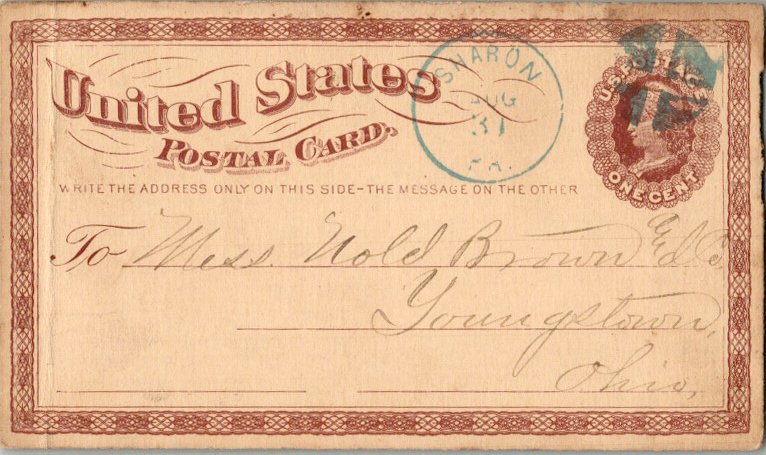 United States
POSTAL CARD.
SHARON
AUG
31
PA.
U.S. POSTAGE
ONE CENT
WRITE THE ADDRESS ONLY ON THIS SIDE-THE MESSAGE ON THE OTHER
To Mess. Nold Brown & Co
Youngstown,
Ohio,